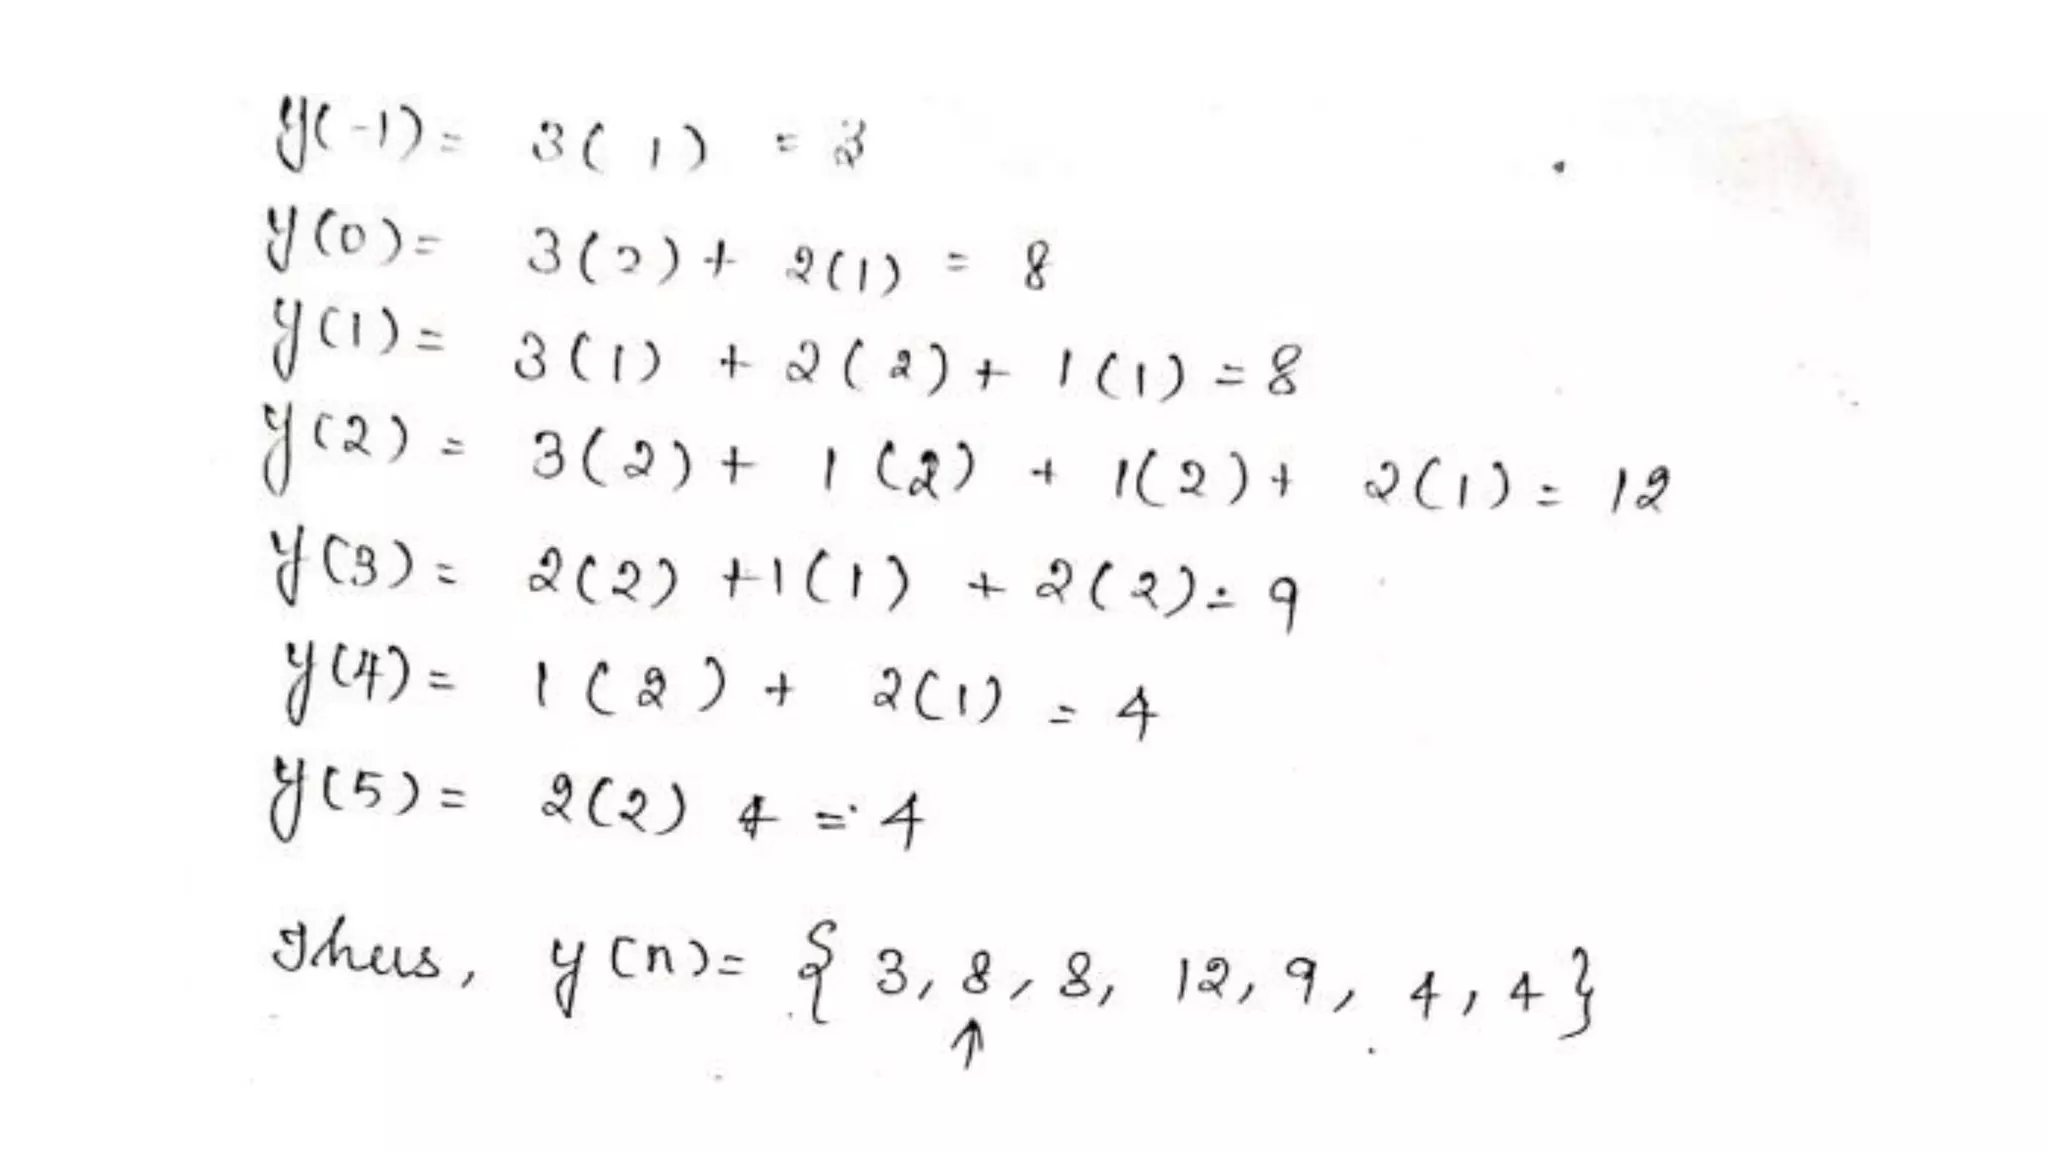 y(-1) = 3(1) = 3
y(0) = 3(2) + 2(1) = 8
y(1) = 3(1) + 2(2) + 1(1) = 8
y(2) = 3(2) + 1(2) + 1(2) + 2(1) = 12
y(3) = 2(2) + 1(1) + 2(2) = 9
y(4) = 1(2) + 2(1) = 4
y(5) = 2(2) 4 = 4
Thus, y(n) = { 3, 8, 8, 12, 9, 4, 4 }
↑